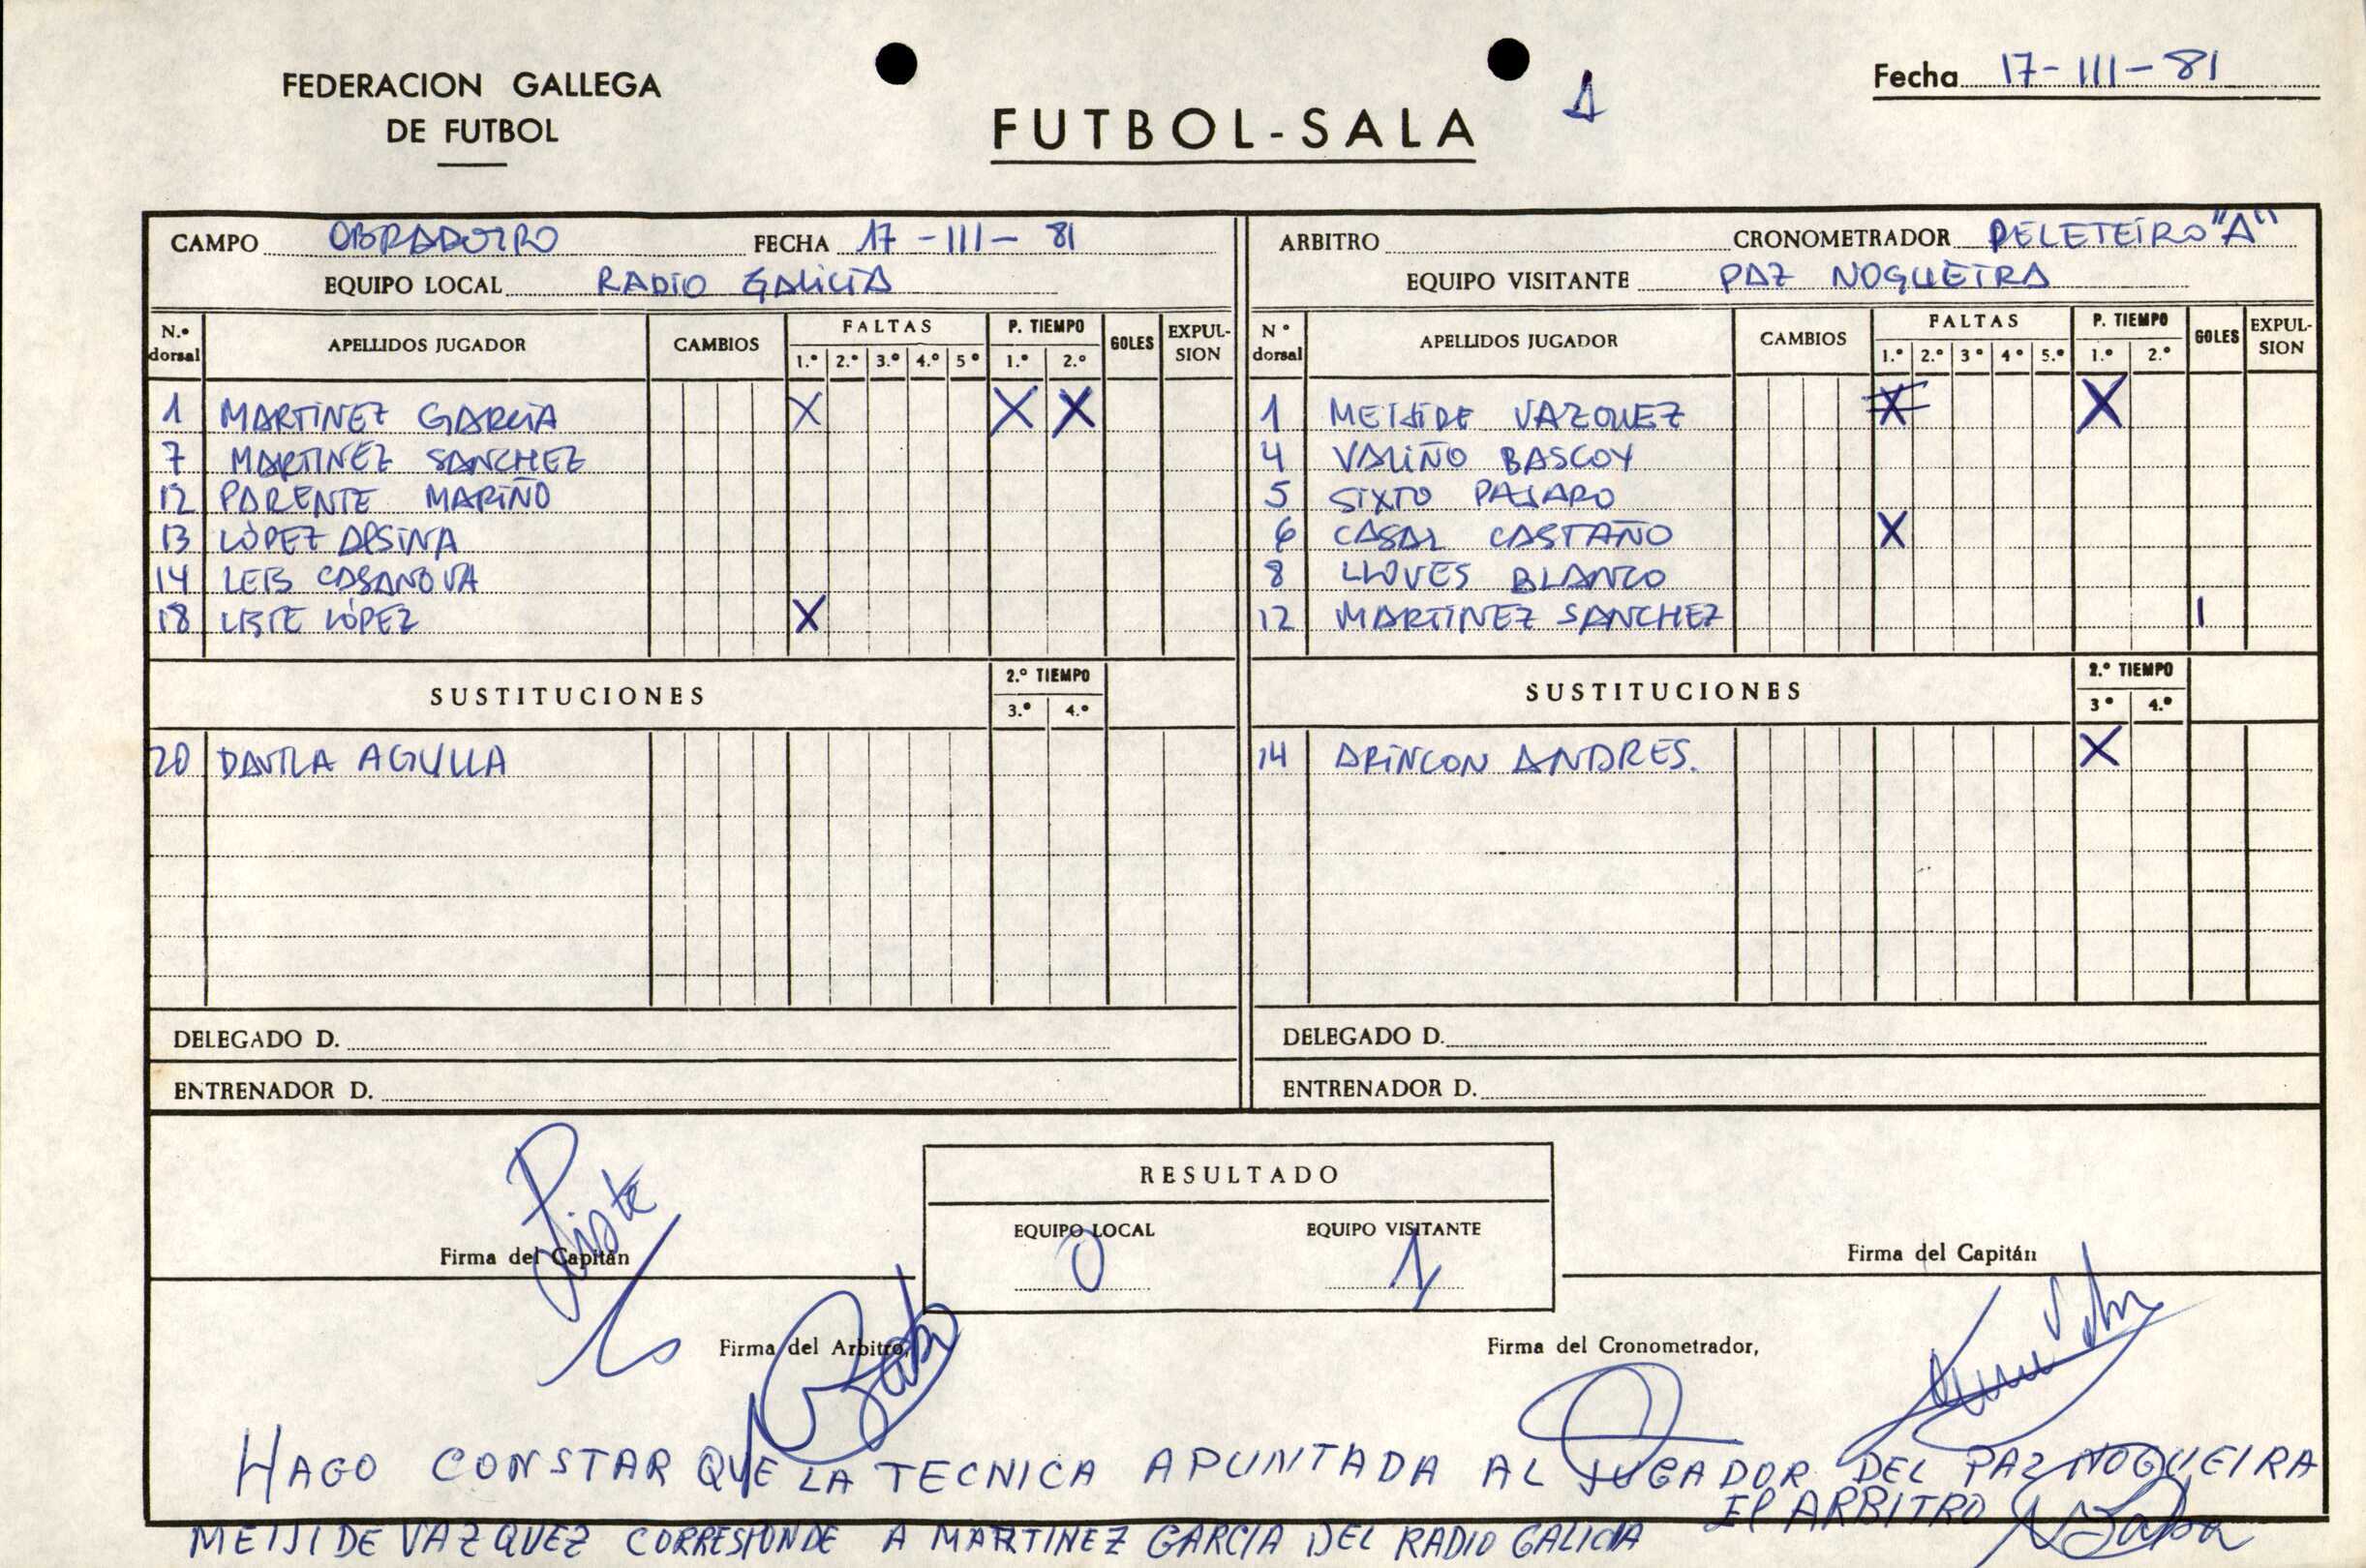 FEDERACION GALLEGA
DE FUTBOL
FUTBOL-SALA
1
Fecha 17-III-81
CAMPO OBRADOIRO FECHA 17-III-81
EQUIPO LOCAL RADIO GALICIA
ARBITRO CRONOMETRADOR PELETEIRO "A"
EQUIPO VISITANTE PAZ NOGUEIRA
N.º dorsal APELLIDOS JUGADOR CAMBIOS FALTAS 1.º 2.º 3.º 4.º 5º P. TIEMPO 1.º 2.º GOLES EXPUL-SION
1 MARTINEZ GARCIA X X X
7 MARTINEZ SANCHEZ
12 PARENTE MARIÑO
13 LOPEZ ALSINA
14 LEIS CASANOVA
18 LISTE LÓPEZ X
SUSTITUCIONES 2.º TIEMPO 3.º 4.º
20 DAVILA AGULLA
DELEGADO D.
ENTRENADOR D.
Nº dorsal APELLIDOS JUGADOR CAMBIOS FALTAS 1.º 2.º 3º 4º 5.º P. TIEMPO 1.º 2.º GOLES EXPUL-SION
1 MEIJIDE VAZQUEZ X X
4 VALIÑO BASCOY
5 SIXTO PAJARO
6 CASAL CASTAÑO X
8 LLOVES BLANCO
12 MARTINEZ SANCHEZ 1
SUSTITUCIONES 2.º TIEMPO 3º 4.º
14 ARINCON ANDRES. X
DELEGADO D.
ENTRENADOR D.
RESULTADO
EQUIPO LOCAL EQUIPO VISITANTE
0 1
Firma del Capitán
Liste
Firma del Capitán
Firma del Arbitro,
Firma del Cronometrador,
HAGO CONSTAR QUE LA TECNICA APUNTADA AL JUGADOR DEL PAZ NOGUEIRA
MEIJIDE VAZQUEZ CORRESPONDE A MARTINEZ GARCIA DEL RADIO GALICIA
El ARBITRO